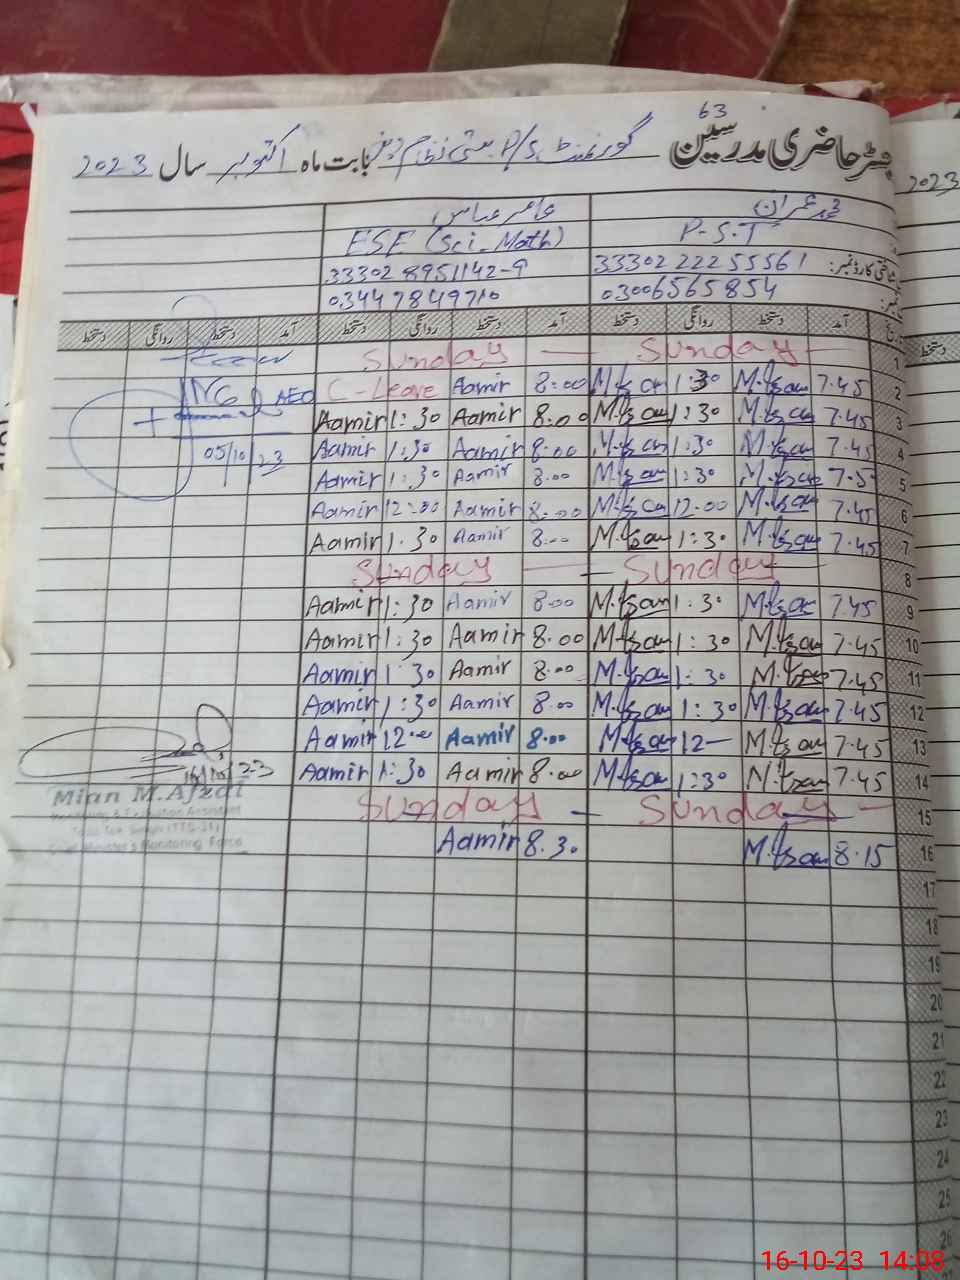 63
رجسٹر حاضری مدرسین گورنمنٹ P/S بستی نظام بابت ماہ اکتوبر سال 2023
2023
محمد عمران عامر عباس
P-S.T ESE (Sci-Math)
شناختی کارڈ نمبر: 33302 22255561 33302 8951142-9
03006565854 03447849710
آمد دستخط روانگی دستخط آمد دستخط روانگی دستخط آمد دستخط روانگی دستخط
دستخط
1 Sunday — Sunday
2 7.45 M.Imran 1:30 M.Imran 8:00 Aamir C-Leave
AEO
3 7.45 M.Imran 1:30 M.Imran 8.00 Aamir 1:30 Aamir
4 7.45 M.Imran 1:30 M.Imran 8.00 Aamir 1:30 Aamir
05/10/23
5 7.5 M.Imran 1:30 M.Imran 8.00 Aamir 1:30 Aamir
6 7.45 M.Imran 12.00 M.Imran 8.00 Aamir 12:00 Aamir
7 7.45 M.Imran 1:30 M.Imran 8.00 Aamir 1.30 Aamir
8 Sunday — Sunday
9 7.45 M.Imran 1:30 M.Imran 8.00 Aamir 1:30 Aamir
10 7.45 M.Imran 1:30 M.Imran 8.00 Aamir 1:30 Aamir
11 7.45 M.Imran 1:30 M.Imran 8.00 Aamir 1:30 Aamir
12 7.45 M.Imran 1:30 M.Imran 8.00 Aamir 1:30 Aamir
13 7.45 M.Imran 12— M.Imran 8.00 Aamir 12.00 Aamir
14 7.45 M.Imran 1:30 M.Imran 8.00 Aamir 1:30 Aamir
16/10/23
Mian M.Afzal
Monitoring & Evaluation Assistant
Toba Tek Singh (TTS-31)
Chief Minister's Monitoring Force
15 Sunday — Sunday
16 8.15 M.Imran 8.30 Aamir
17
18
19
20
21
22
23
24
25
26
16-10-23 14:08